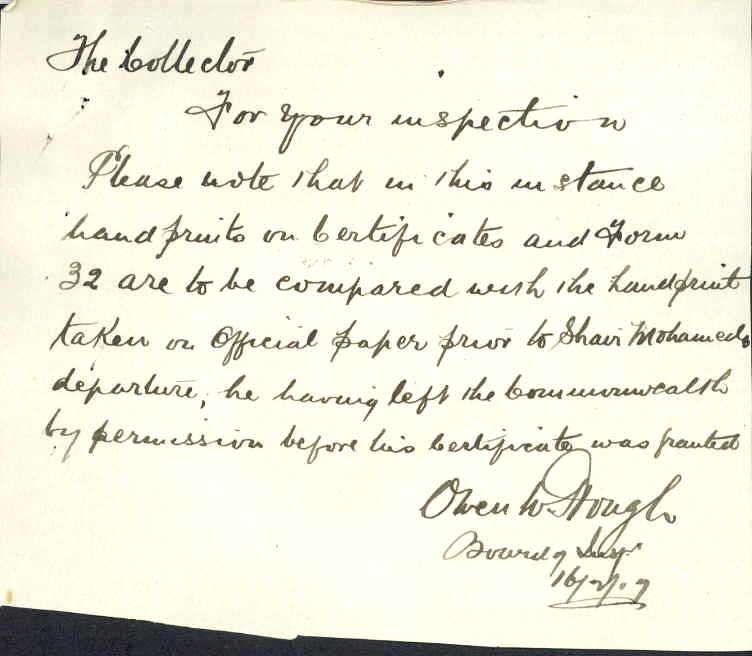 The Collector
For your inspection
Please note that in this instance
handprints on Certificates and Form
32 are to be compared with the handprint
taken on Official paper prior to Shair Mohameds
departure, he having left the Commonwealth
by permission before his Certificate was granted
Owen W. Hough
Board g